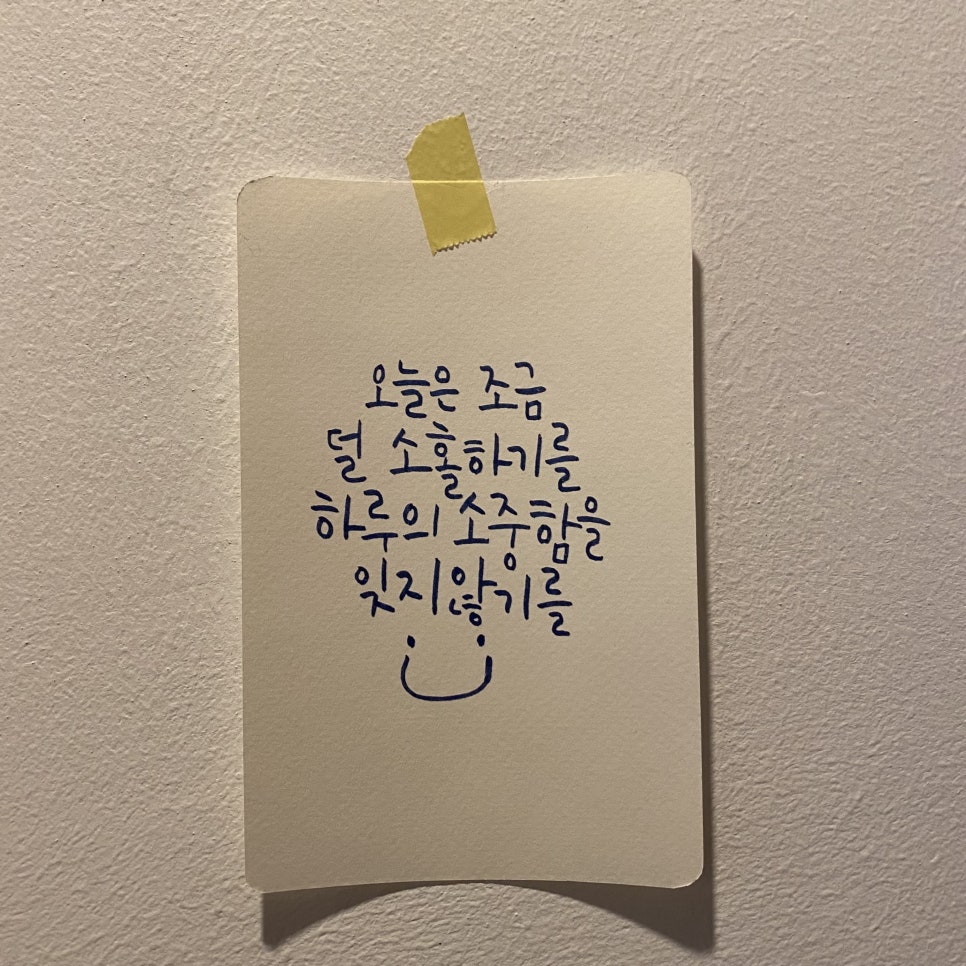 오늘은 조금
덜 소홀하기를
하루의 소중함을
잊지않기를